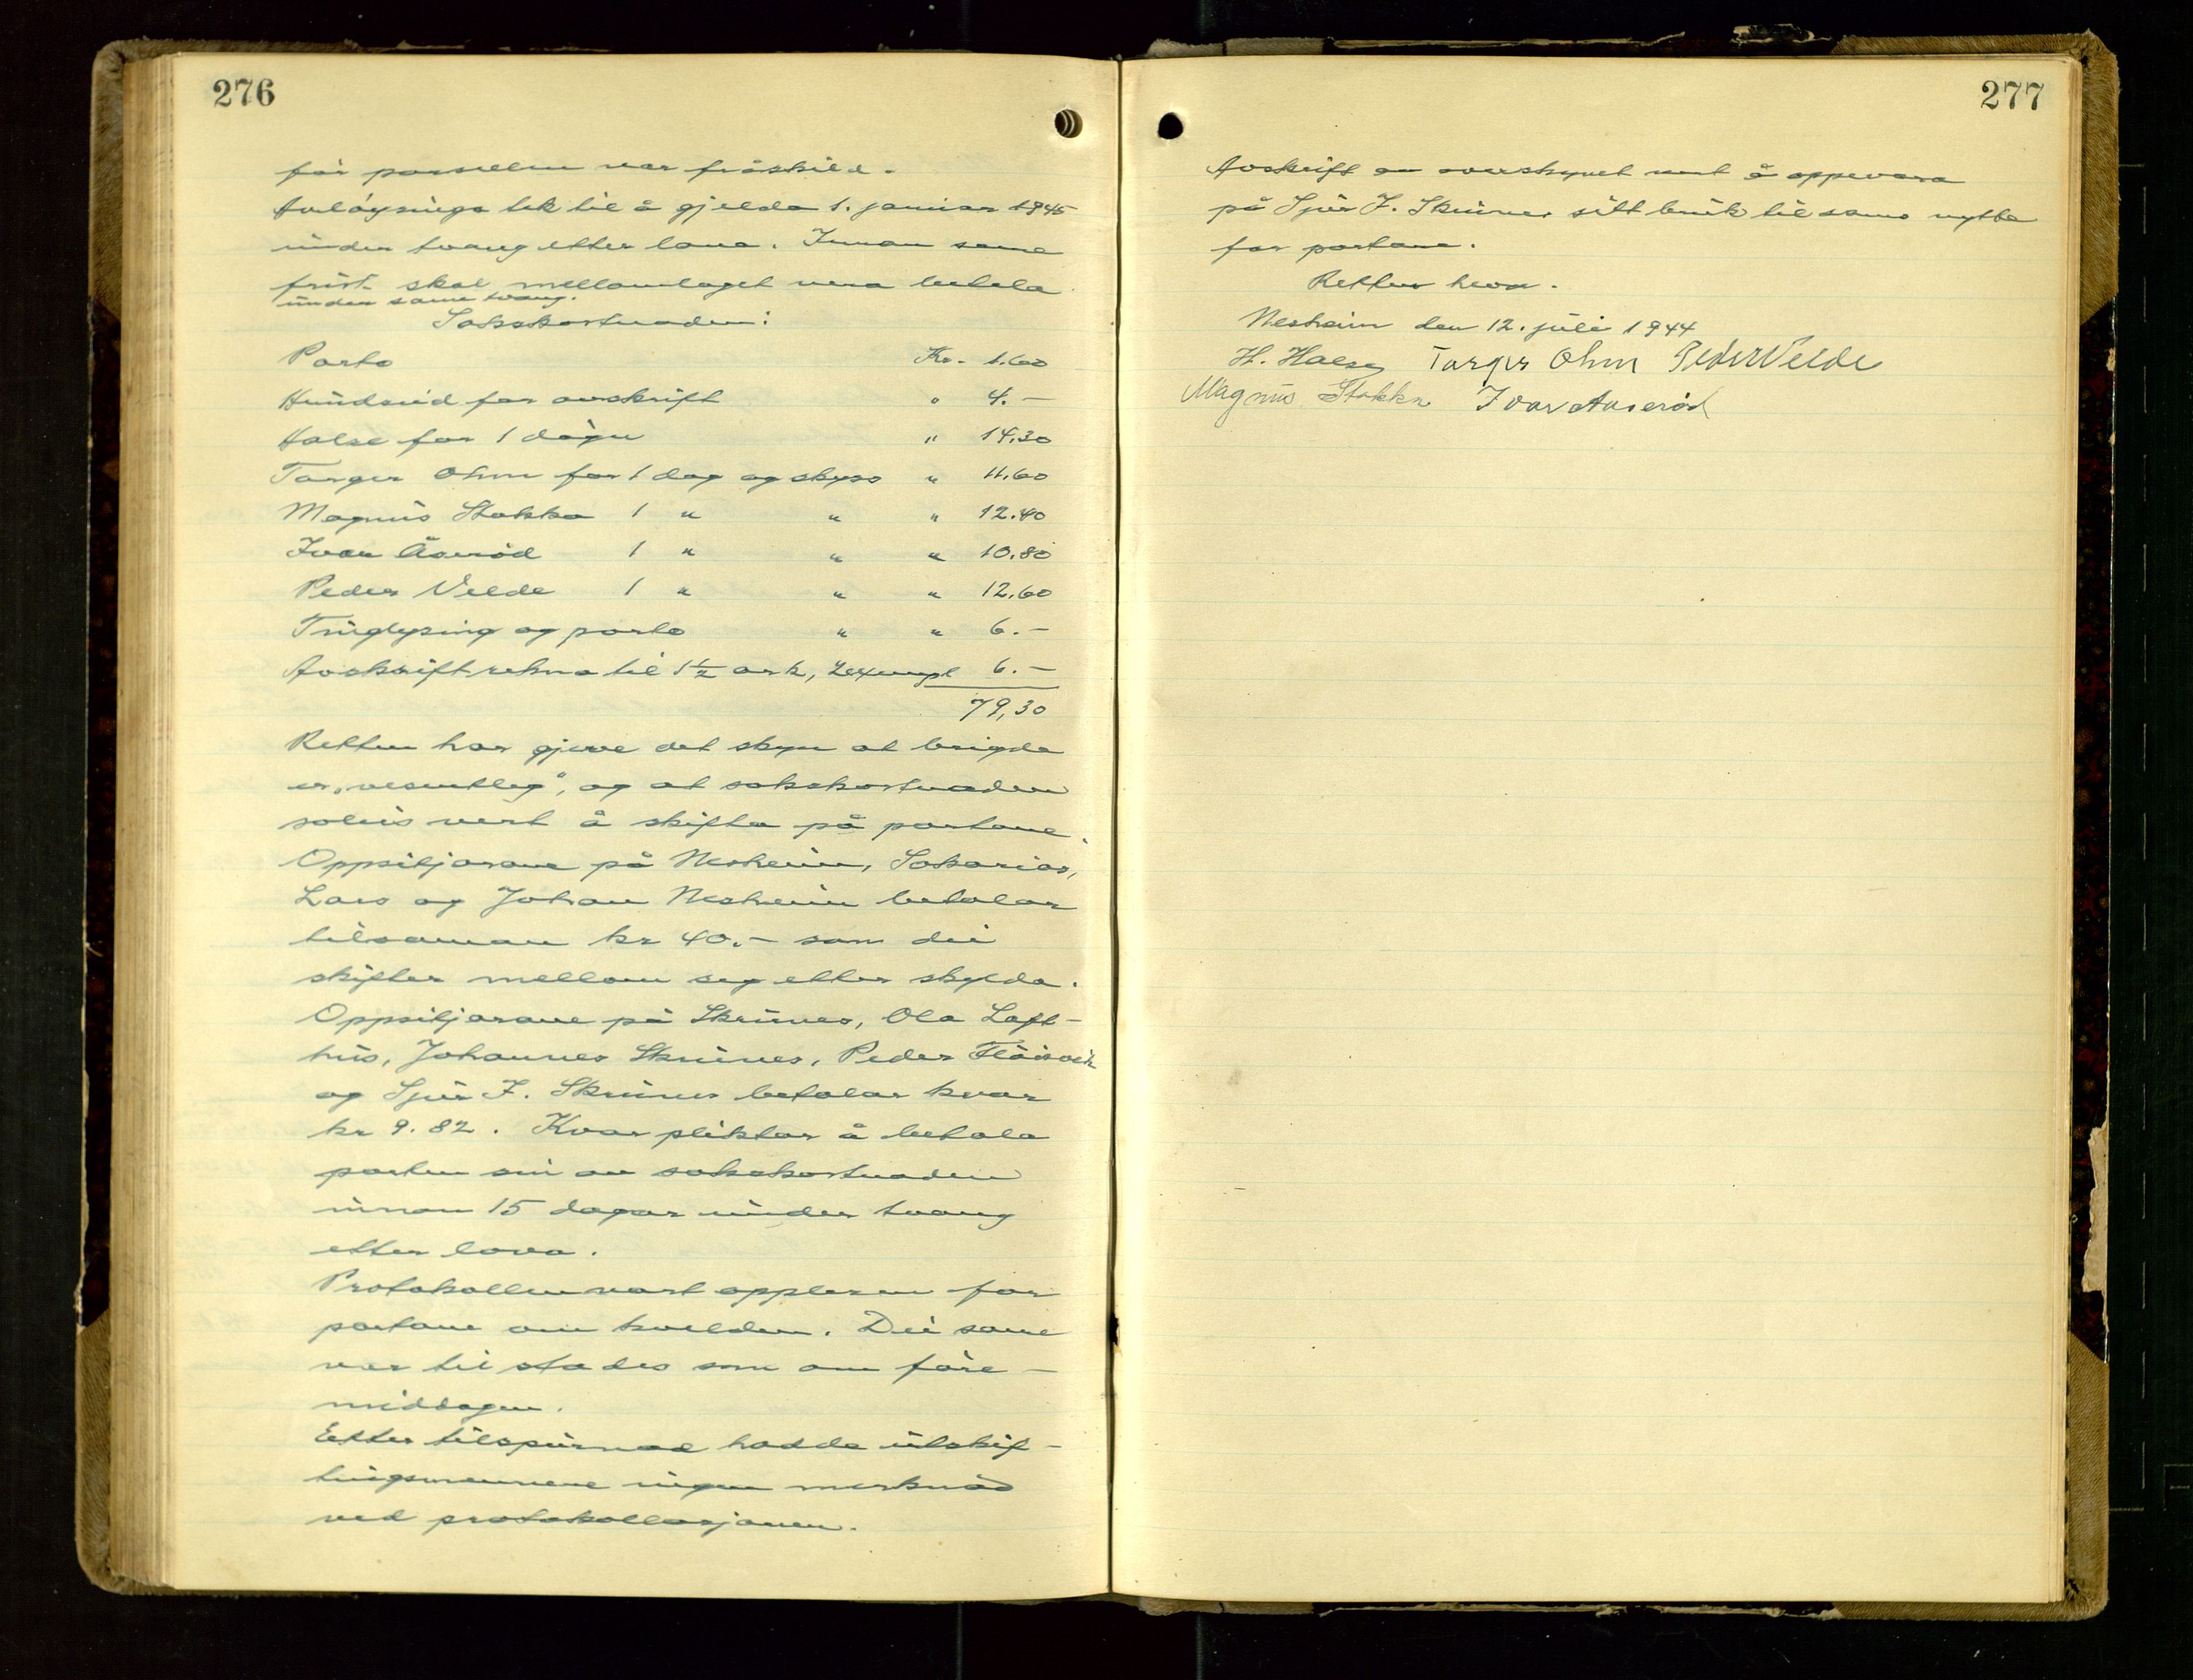 276
før parsellen var fråskild.
Avløysinga tek til å gjelda 1. januar 1945
under tvang etter lova. Innan same
frist skal mellomlaget vera betala
under same tvang.
Sakskostnaden:
Porto Kr. 1.60
Hundseid for avskrift " 4.-
Halse for 1 døgn " 14.30
Torger Ohm for 1 dag og skyss " 11.60
Magnus Stakka 1 " " " 12.40
Ivar Åserød 1 " " " 10.80
Peder Velde 1 " " " 12.60
Tinglysing og porto " " 6.-
Avskrift rekna til 1½ ark, 2 exempl 6.-
79,30
Retten har gjeve det skyn at brigda
er "vesentleg", og at sakskostnaden
soleis vert å skifta på partane.
Oppsitjarane på Nesheim, Sakarias,
Lars og Johan Nesheim betalar
tilsaman kr 40.- som dei
skifter mellom seg etter skylda.
Oppsitjarane på Skrunes, Ola Loft-
hus, Johannes Skrunes, Peder Fløisvik
og Sjur J. Skrunes betalar kvar
kr 9.82. Kvar pliktar å betala
parten sin av sakskostnaden
innan 15 dagar under tvang
etter lova.
Protokollen vart opplesen for
partane om kvelden. Dei same
var til stades som om føre-
middagen.
Etter tilspurnad hadde utskif-
tingsmennene ingen merknad
ved protokollasjonen.
277
Avskrift av overskynet vert å oppevara
på Sjur J. Skrunes sitt bruk til sams nytte
for partane.
Retten heva.
Nesheim den 12. juli 1944
H. Halse Torger Ohm Peder Velde
Magnus Stakka Ivar Aaserød